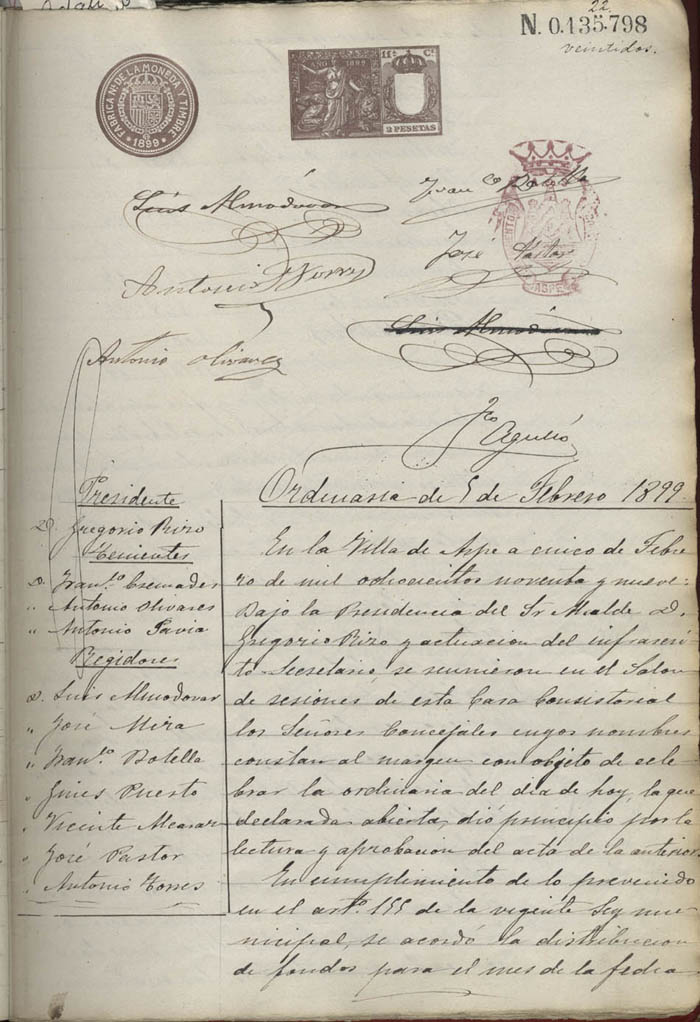 22
N. 0.135.798
veintidos.
FABRICA NAL DE LA MONEDA Y TIMBRE
1899
AÑO 1899
11ª Cª
2 PESETAS
Luis Almodovar
Franco Botella
José Pastor
ASPE
Antonio Torres
Luis Almodovar
Antonio Olivares
Fco Agulló
Presidente
D. Gregorio Rizo
Tenientes
D. Franco Cremades
" Antonio Olivares
" Antonio Pavia
Regidores
D. Luis Almodovar
" José Mira
" Franco Botella
" Gines Puerto
" Vicente Alcaraz
" José Pastor
" Antonio Torres
Ordinaria de 5 de Febrero 1899
En la Villa de Aspe a cinco de Febre
ro de mil ochocientos noventa y nueve:
Bajo la Presidencia del Sr Alcalde D.
Gregorio Rizo y actuacion del infrascri
to Secretario, se reunieron en el Salon
de sesiones de esta Casa Consistorial
los Señores Concejales cuyos nombres
constan al margen con objeto de cele
brar la ordinaria del dia de hoy, la que
declarada abierta, dió principio por la
lectura y aprobacion del acta de la anterior.
En cumplimiento de lo prevenido
en el arto. 155 de la vigente Ley mu
nicipal, se acordó la distribucion
de fondos para el mes de la fecha